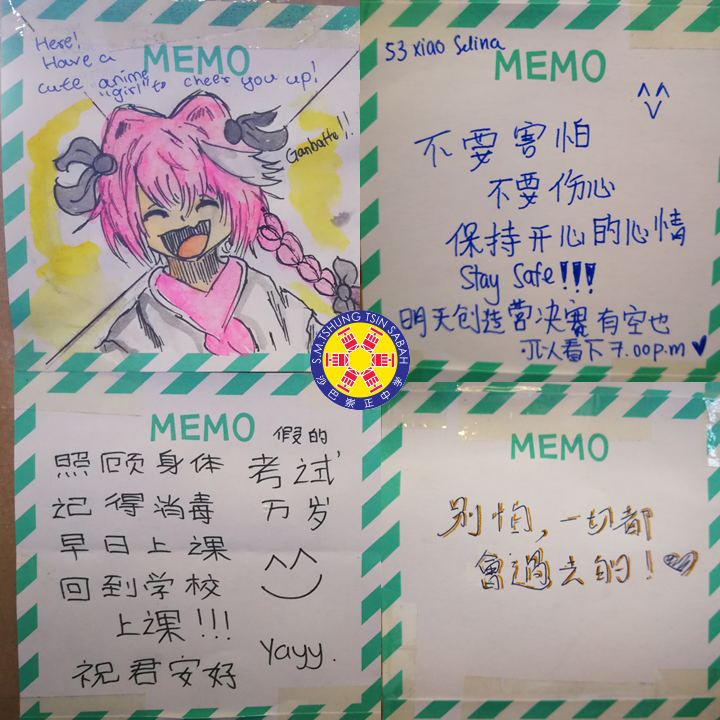 Here!
Have a
cute anime
"girl" to cheer you up!
MEMO
Ganbatte!!
53 xiao Selina
MEMO
不要害怕
不要伤心
保持开心的心情
Stay Safe!!!
明天创造营决赛有空也
可以看下 7.00p.m
S.M TSHUNG TSIN SABAH
沙巴崇正中学
MEMO
照顾身体
记得消毒
早日上课
回到学校
上课!!!
祝君安好
假的
考试
万岁
Yayy.
MEMO
别怕,一切都
會過去的!